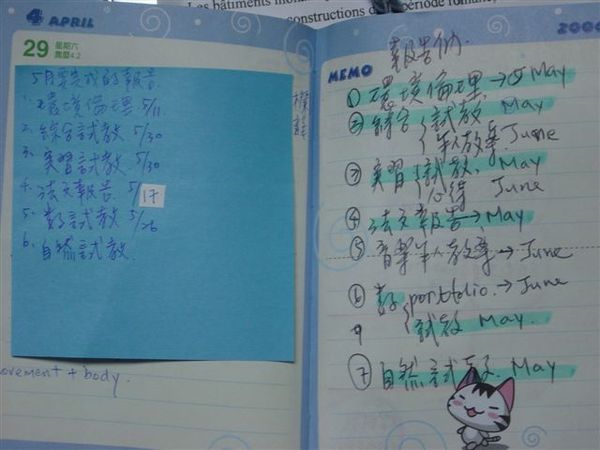 Les bâtiments
constructions de période romane,
4 APRIL
29 星期六
農曆4.2
5月要完成的報告
1. 環境倫理 5/11
2. 綜合試教 5/30
3. 實習試教 5/30
4. 法文報告 5/17
5. 數試教 5/26
6. 自然試教
movement + body.
2006
MEMO
① 環境倫理 → May
② 綜合 試教 May
單人教案 June
③ 實習 試教、May
心得 June
④ 法文報告 → May
⑤ 音樂單人教案 → June
⑥ 數 portfolio. → June
試教 May.
⑦ 自然試教. May